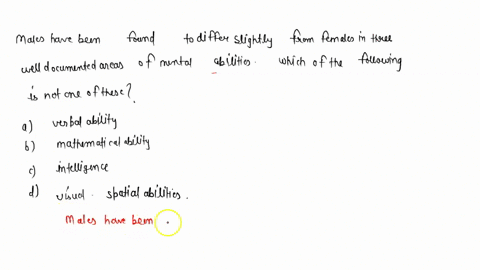 Males have been found to differ slightly from females in three
well documented areas of mental abilities. which of the following
is not one of these?
a) verbal ability
b) mathematical ability
c) intelligence
d) visual. spatial abilities.
Males have been